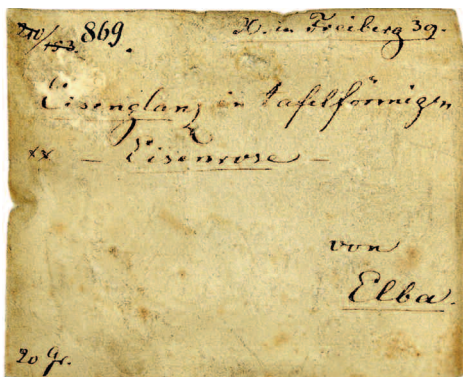 210/153. 869. H. in Freiberg 39.
Eisenglanz in tafelförmigen
xx – Eisenrose –
von
Elba.
20 Gr.